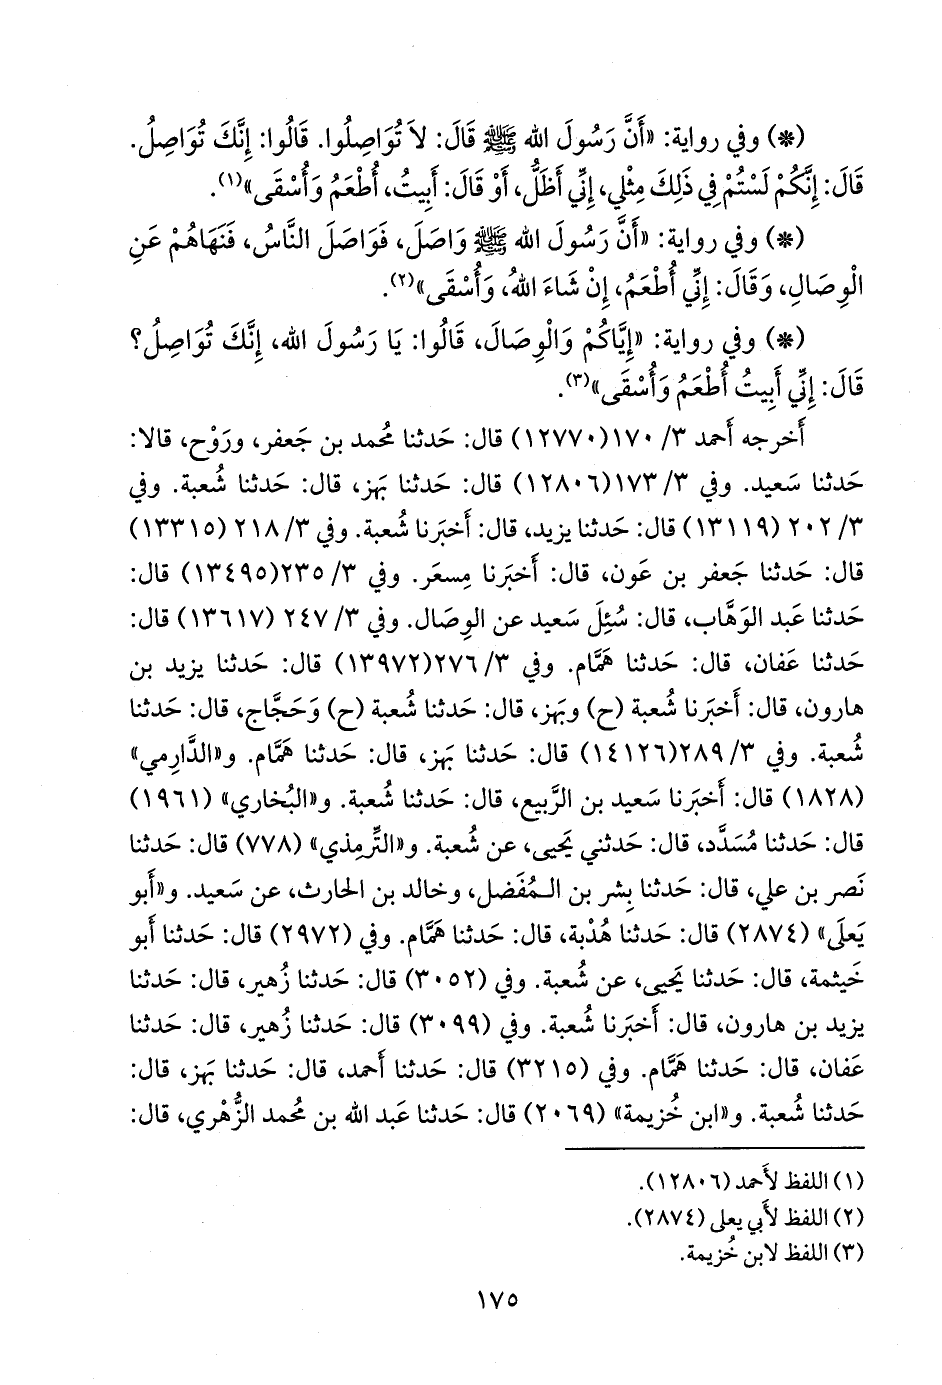 (*) وفي رواية: «أَنَّ رَسُولَ الله ﷺ قَالَ: لاَ تُوَاصِلُوا. قَالُوا: إِنَّكَ تُوَاصِلُ.
قَالَ: إِنَّكُمْ لَسْتُمْ فِي ذَلِكَ مِثْلِي، إِنِّي أَظَلُّ، أَوْ قَالَ: أَبِيتُ، أُطْعَمُ وَأُسْقَى»(١).
(*) وفي رواية: «أَنَّ رَسُولَ الله ﷺ وَاصَلَ، فَوَاصَلَ النَّاسُ، فَنَهَاهُمْ عَنِ
الْوِصَالِ، وَقَالَ: إِنِّي أُطْعَمُ، إِنْ شَاءَ اللهُ، وَأُسْقَى»(٢).
(*) وفي رواية: «إِيَّاكُمْ وَالْوِصَالَ، قَالُوا: يَا رَسُولَ الله، إِنَّكَ تُوَاصِلُ؟
قَالَ: إِنِّي أَبِيتُ أُطْعَمُ وَأُسْقَى»(٣).
أَخرجه أَحمد ٣/ ١٧٠(١٢٧٧٠) قال: حَدثنا مُحمد بن جَعفر، ورَوْح، قالا:
حَدثنا سَعيد. وفي ٣/ ١٧٣(١٢٨٠٦) قال: حَدثنا بَهز، قال: حَدثنا شُعبة. وفي
٣/ ٢٠٢ (١٣١١٩) قال: حَدثنا يزيد، قال: أَخبَرنا شُعبة. وفي ٣/ ٢١٨ (١٣٣١٥)
قال: حَدثنا جَعفر بن عَون، قال: أَخبَرنا مِسعَر. وفي ٣/ ٢٣٥(١٣٤٩٥) قال:
حَدثنا عَبد الوَهَّاب، قال: سُئِلَ سَعيد عن الوِصَال. وفي ٣/ ٢٤٧ (١٣٦١٧) قال:
حَدثنا عَفان، قال: حَدثنا هَمَّام. وفي ٣/ ٢٧٦(١٣٩٧٢) قال: حَدثنا يزيد بن
هارون، قال: أَخبَرنا شُعبة (ح) وبَهز، قال: حَدثنا شُعبة (ح) وَحَجَّاج، قال: حَدثنا
شُعبة. وفي ٣/ ٢٨٩(١٤١٢٦) قال: حَدثنا بَهز، قال: حَدثنا هَمَّام. و«الدَّارِمي»
(١٨٢٨) قال: أَخبَرنا سَعيد بن الرَّبيع، قال: حَدثنا شُعبة. و«البُخاري» (١٩٦١)
قال: حَدثنا مُسَدَّد، قال: حَدثني يَحيى، عن شُعبة. و«التِّرمِذي» (٧٧٨) قال: حَدثنا
نَصر بن علي، قال: حَدثنا بِشر بن الـمُفَضل، وخالد بن الحارث، عن سَعيد. و«أَبو
يَعلَى» (٢٨٧٤) قال: حَدثنا هُدْبة، قال: حَدثنا هَمَّام. وفي (٢٩٧٢) قال: حَدثنا أَبو
خَيثمة، قال: حَدثنا يَحيى، عن شُعبة. وفي (٣٠٥٢) قال: حَدثنا زُهير، قال: حَدثنا
يزيد بن هارون، قال: أَخبَرنا شُعبة. وفي (٣٠٩٩) قال: حَدثنا زُهير، قال: حَدثنا
عَفان، قال: حَدثنا هَمَّام. وفي (٣٢١٥) قال: حَدثنا أَحمد، قال: حَدثنا بَهز، قال:
حَدثنا شُعبة. و«ابن خُزيمة» (٢٠٦٩) قال: حَدثنا عَبد الله بن مُحمد الزُّهْري، قال:
(١) اللفظ لأَحمد (١٢٨٠٦).
(٢) اللفظ لأَبي يعلى (٢٨٧٤).
(٣) اللفظ لابن خُزيمة.
١٧٥